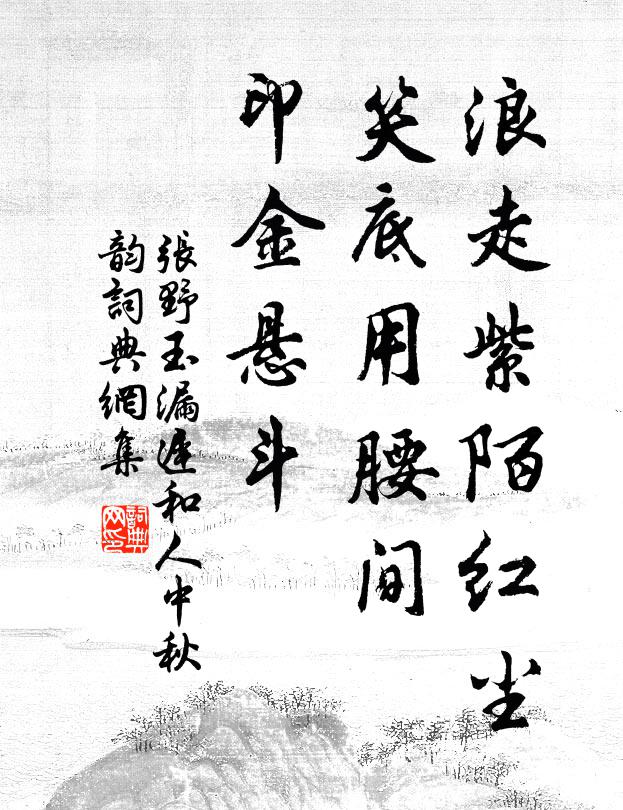 浪走紫陌红尘
笑底用腰间
印金悬斗
張野玉漏遲和人中秋
韵詞典網集
詞典
网印